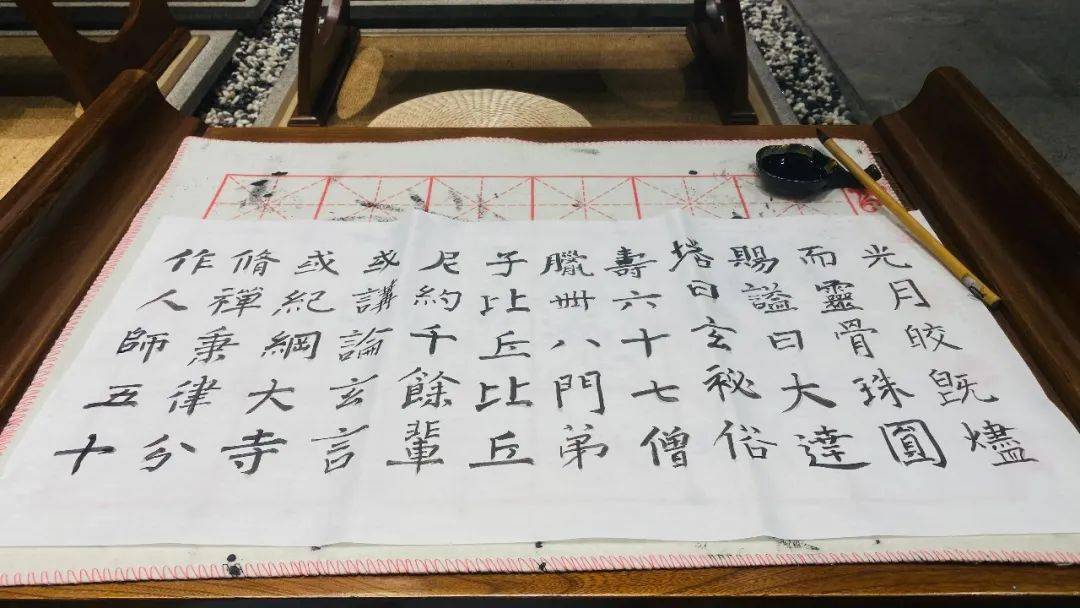 光月皎既燼
而靈骨珠圓
賜謚曰大達
塔曰玄祕俗
壽六十七僧
臘卌八門弟
子比丘比丘
尼約千餘輩
或講論玄言
或紀綱大寺
脩禪秉律分
作人師五十